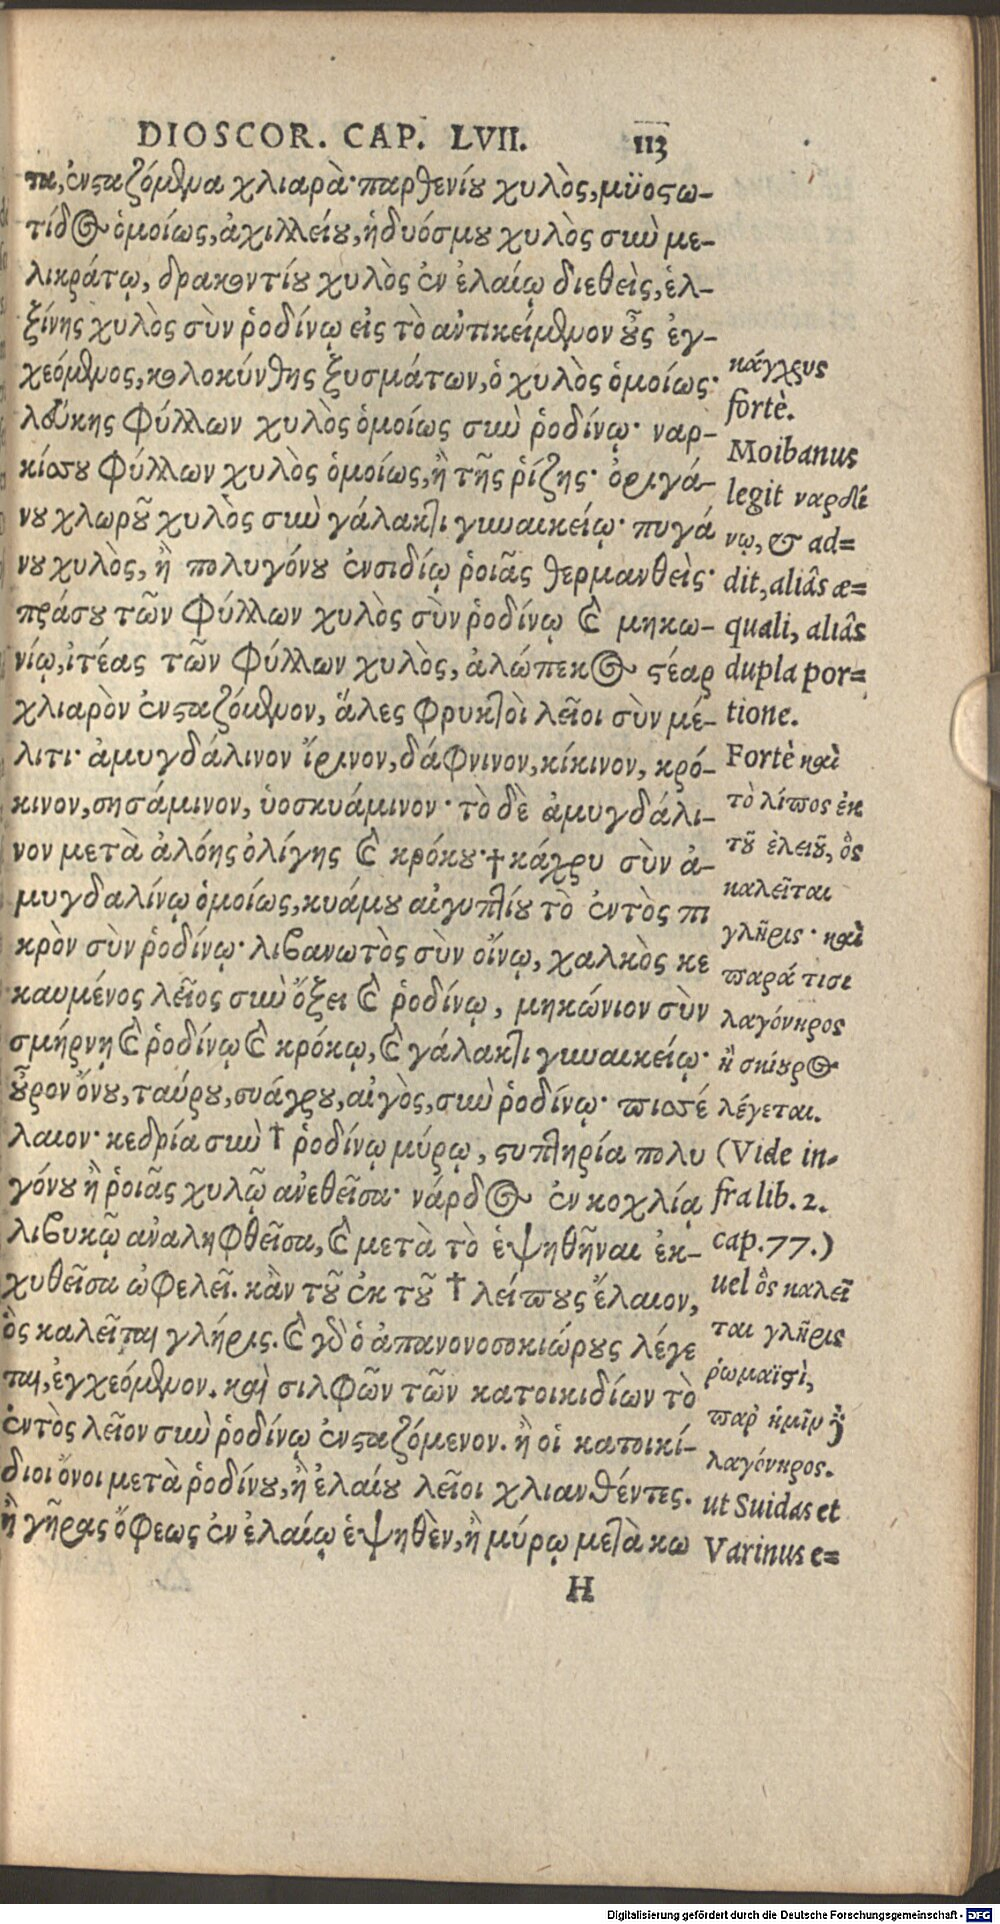 DIOSCOR. CAP. LVII. 113
τα, ἐνσταζόμενα χλιαρὰ· παρθενίου χυλὸς, μϋοσω-
τίδος ὁμοίως, ἀχιλλείου, ἡδυόσμου χυλὸς σὺν με-
λικράτῳ, δρακοντίου χυλὸς ἐν ἐλαίῳ διεθεὶς, ἑλ-
ξίνης χυλὸς σὺν ῥοδίνῳ εἰς τὸ ἀντικείμενον οὖς ἐγ-
χεόμενος, κολοκύνθης ξυσμάτων, ὁ χυλὸς ὁμοίως·
λεύκης φύλλων χυλὸς ὁμοίως σὺν ῥοδίνῳ· ναρ-
κίσου φύλλων χυλὸς ὁμοίως, ἢ τῆς ῥίζης· ὀριγά-
νου χλωροῦ χυλὸς σὺν γάλακτι γυναικείῳ· πυγά
νου χυλὸς, ἢ πολυγόνου ἐν σιδίῳ ῥοιᾶς θερμανθεὶς·
πράσου τῶν φύλλων χυλὸς σὺν ῥοδίνῳ καὶ μηκω-
νίῳ, ἰτέας τῶν φύλλων χυλὸς, ἀλώπεκος στέαρ
χλιαρὸν ἐνσταζόμενον, ἅλες φρυκτοὶ λεῖοι σὺν μέ-
λιτι· ἀμυγδάλινον ἴρινον, δάφνινον, κίκινον, κρό-
κινον, σησάμινον, ὑοσκυάμινον· τὸ δὲ ἀμυγδάλι-
νον μετὰ ἀλόης ὀλίγης καὶ κρόκου· † κάχρυ σὺν ἀ-
μυγδαλίνῳ ὁμοίως, κυάμου αἰγυπτίου τὸ ἐντὸς πι
κρὸν σὺν ῥοδίνῳ· λιβανωτὸς σὺν οἴνῳ, χαλκὸς κε
καυμένος λεῖος σὺν ὄξει καὶ ῥοδίνῳ, μηκώνιον σὺν
σμήρνῃ καὶ ῥοδίνῳ καὶ κρόκῳ, καὶ γάλακτι γυναικείῳ·
οὖρον ὄνου, ταύρου, συάγρου, αἰγὸς, σὺν ῥοδίνῳ· πισσέ
λαιον· κεδρία σὺν † ῥοδίνῳ μύρῳ, στυπτηρία πολυ
γόνου ἢ ῥοιᾶς χυλῷ ἀνεθεῖσα· νάρδος ἐν κοχλίᾳ
λιβυκῷ ἀναληφθεῖσα, καὶ μετὰ τὸ ἑψηθῆναι ἐκ-
χυθεῖσα ὠφελεῖ. κἂν τοῦ ἐκ τοῦ † λείπους ἔλαιον,
ὃς καλεῖται γλήρις. καὶ γὰρ ὁ ἀπανονοσοκιώρους λέγε
ται, ἐγχεόμενον. καὶ σιλφῶν τῶν κατοικιδίων τὸ
ἐντὸς λεῖον σὺν ῥοδίνῳ ἐνσταζόμενον. ἢ οἱ κατοικί-
διοι ὄνοι μετὰ ῥοδίνου, ἢ ἐλαίου λεῖοι χλιανθέντες.
ἢ γῆρας ὄφεως ἐν ἐλαίῳ ἑψηθὲν, ἢ μύρῳ μετὰ κω
H
κάγχρυς
fortè.
Moibanus
legit ναρδί
νῳ, & ad=
dit, aliâs æ=
quali, aliâs
dupla por=
tione.
Fortè καὶ
τὸ λίπος ἐκ
τοῦ ἐλειοῦ, ὃς
καλεῖται
γλῆρις· καὶ
παρά τισι
λαγόνκρος
ἢ σκίουρος
λέγεται.
(Vide in-
fra lib. 2.
cap. 77.)
uel ὃς καλεῖ
ται γλῆρις
ῥωμαϊστὶ,
παρ' ἡμῖν δὲ
λαγόνκρος.
ut Suidas et
Varinus e=
Digitalisierung gefördert durch die Deutsche Forschungsgemeinschaft - DFG